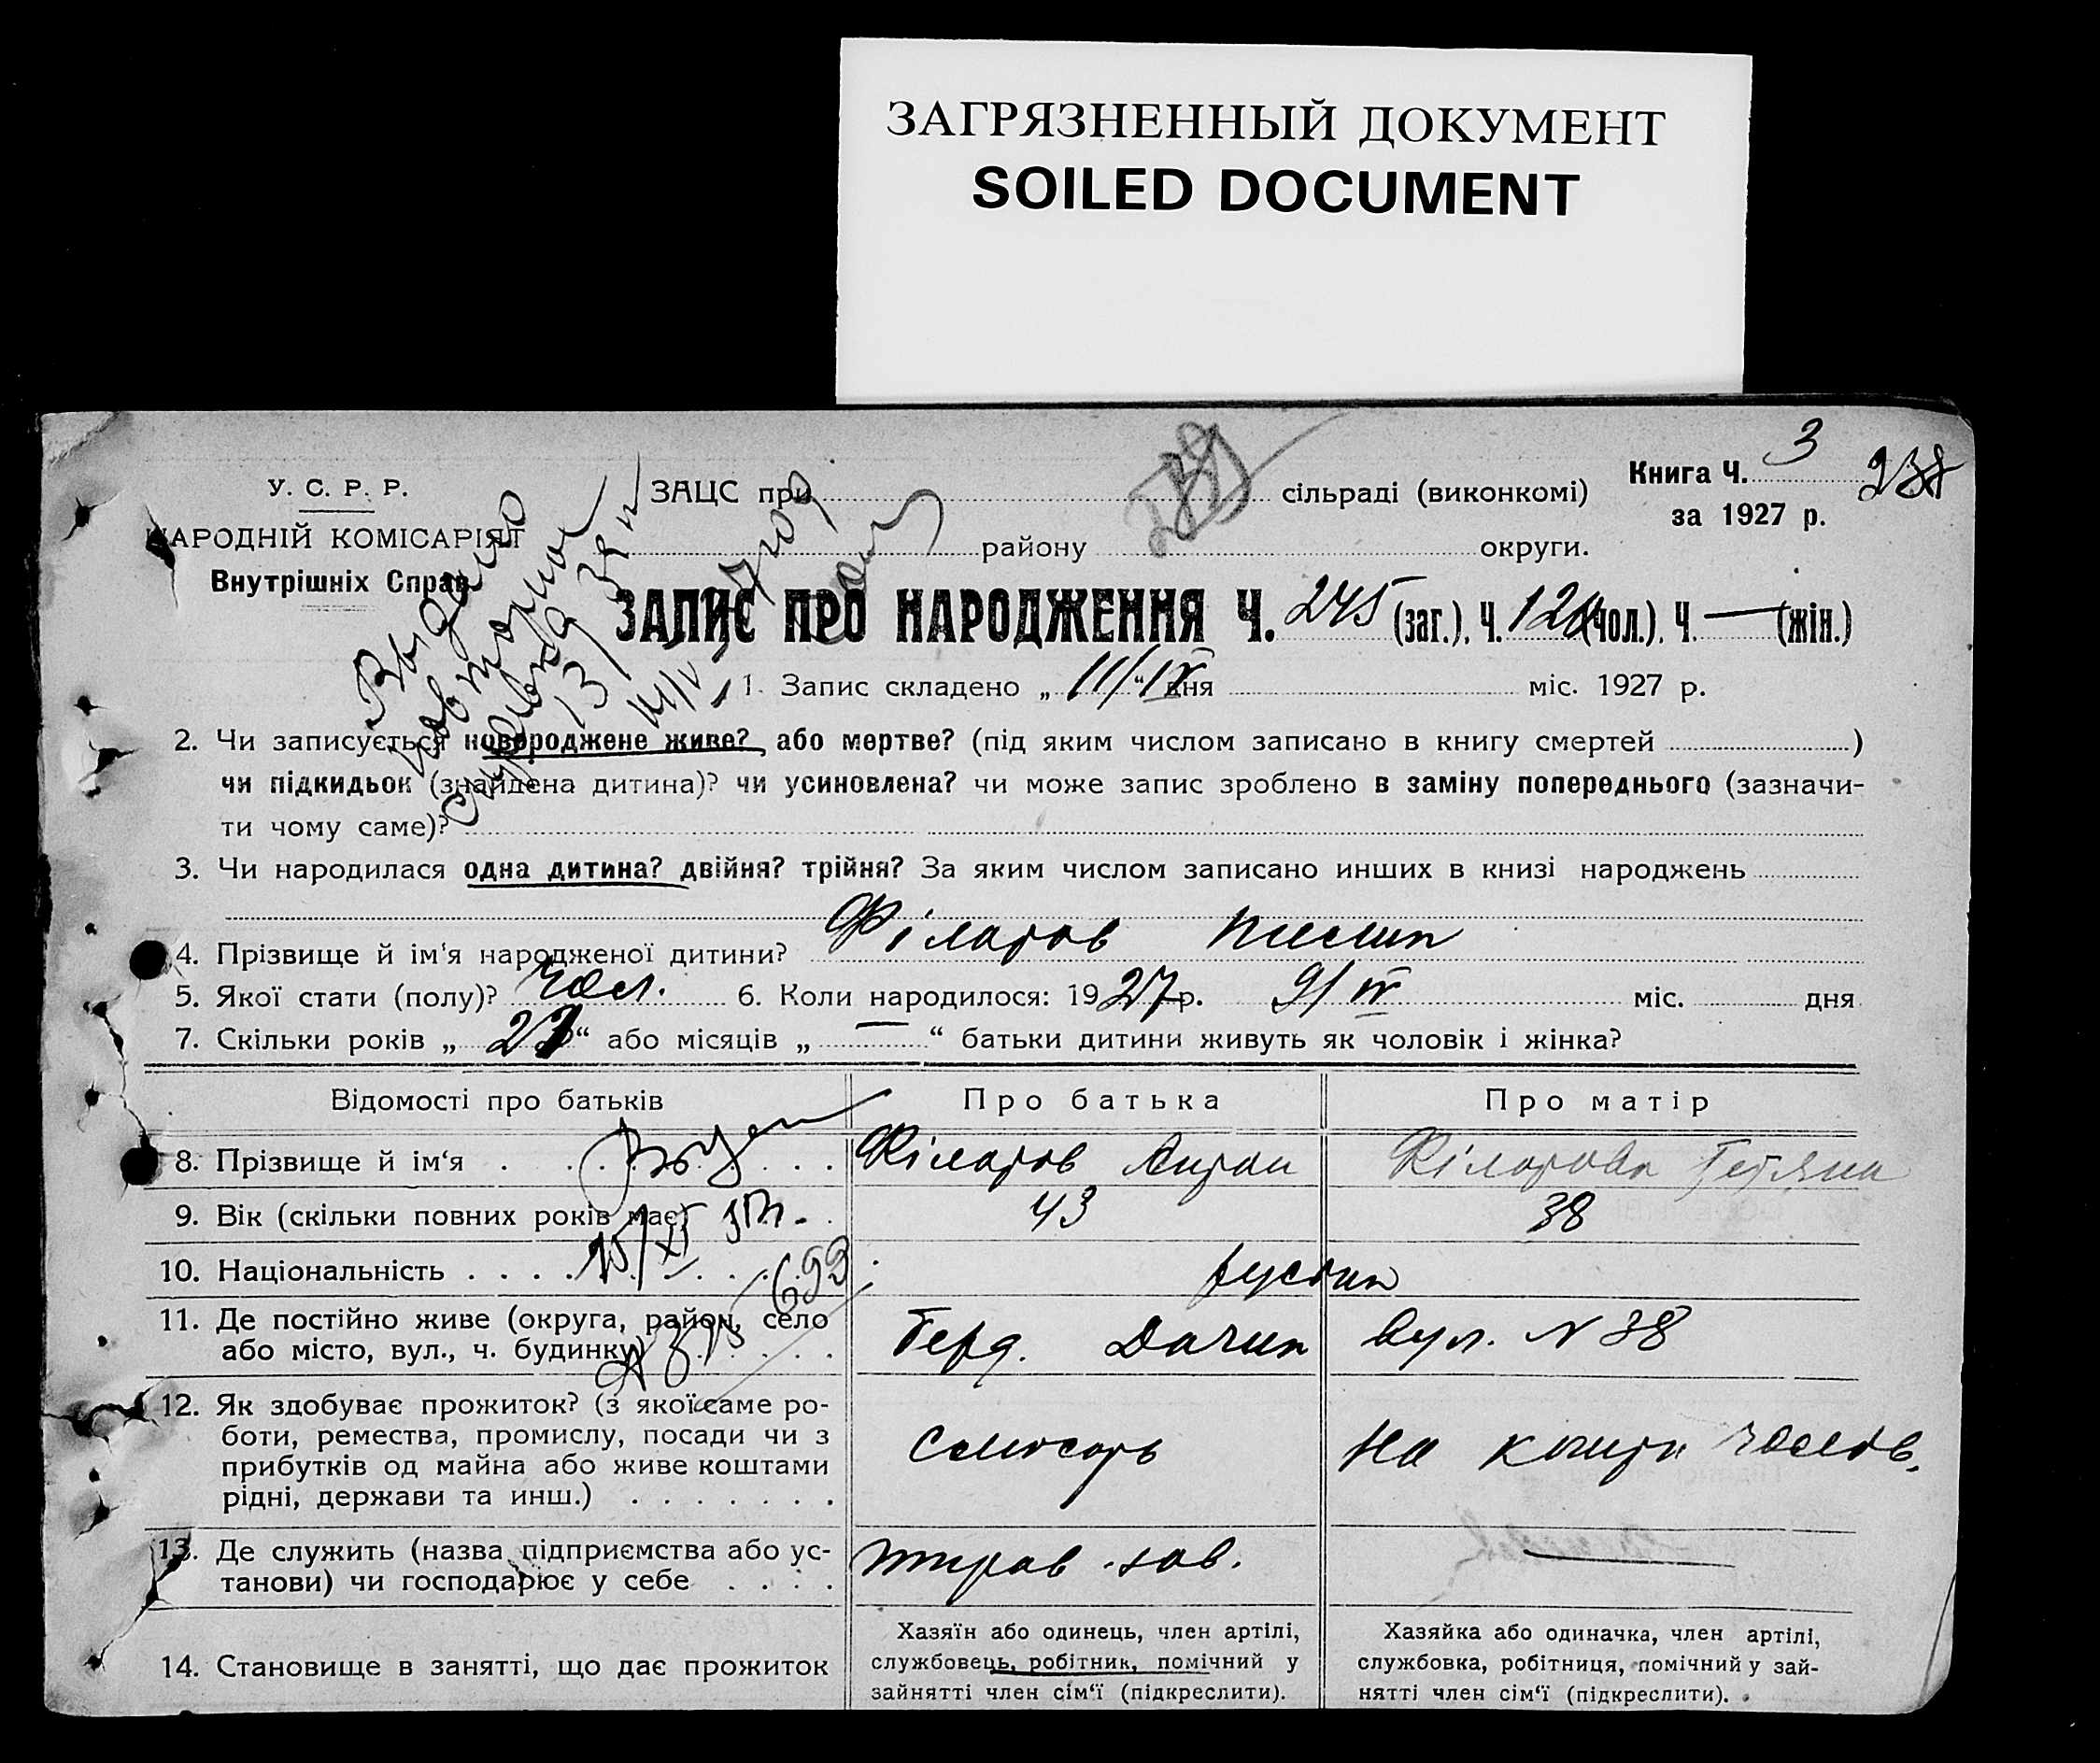 ЗАГРЯЗНЕННЫЙ ДОКУМЕНТ
SOILED DOCUMENT
У. С. Р. Р.
НАРОДНІЙ КОМІСАРІЯТ
Внутрішніх Справ
ЗАЦС при сільраді (виконкомі)
району округи.
Книга Ч. 3
за 1927 р.
ЗАПИС ПРО НАРОДЖЕННЯ Ч. 245 (заг.), Ч. (чол.), Ч. — (жін.)
Выдано
повторное
1. Запис складено „11/IV“ дня міс. 1927 р.
2. Чи записується новороджене живе? або мертве? (під яким числом записано в книгу смертей )
чи підкидьок (знайдена дитина)? чи усиновлена? чи може запис зроблено в заміну попереднього (зазначи-
ти чому саме)?
3. Чи народилася одна дитина? двійня? трійня? За яким числом записано инших в книзі народжень
4. Прізвище й ім'я народженої дитини? Філатов
5. Якої стати (полу)? чол. 6. Коли народилося: 1927 р. 9/IV міс. дня
7. Скільки років „ “ або місяців „—“ батьки дитини живуть як чоловік і жінка?
Відомості про батьків Про батька Про матір
8. Прізвище й ім'я Філатов Антон Філатова Тетяна
9. Вік (скільки повних років має) 43 38
10. Національність
11. Де постійно живе (округа, район, село
або місто, вул., ч. будинку) вул. N 38
12. Як здобуває прожиток? (з якої саме ро-
боти, ремества, промислу, посади чи з
прибутків од майна або живе коштами
рідні, держави та инш.)
Слюсарь На кошти чолов.
13. Де служить (назва підприємства або ус-
танови) чи господарює у себе
зав. —
14. Становище в занятті, що дає прожиток
Хазяїн або одинець, член артілі,
службовець, робітник, помічний у
зайнятті член сім'ї (підкреслити).
Хазяйка або одиначка, член артілі,
службовка, робітниця, помічний у зай-
нятті член сім'ї (підкреслити).